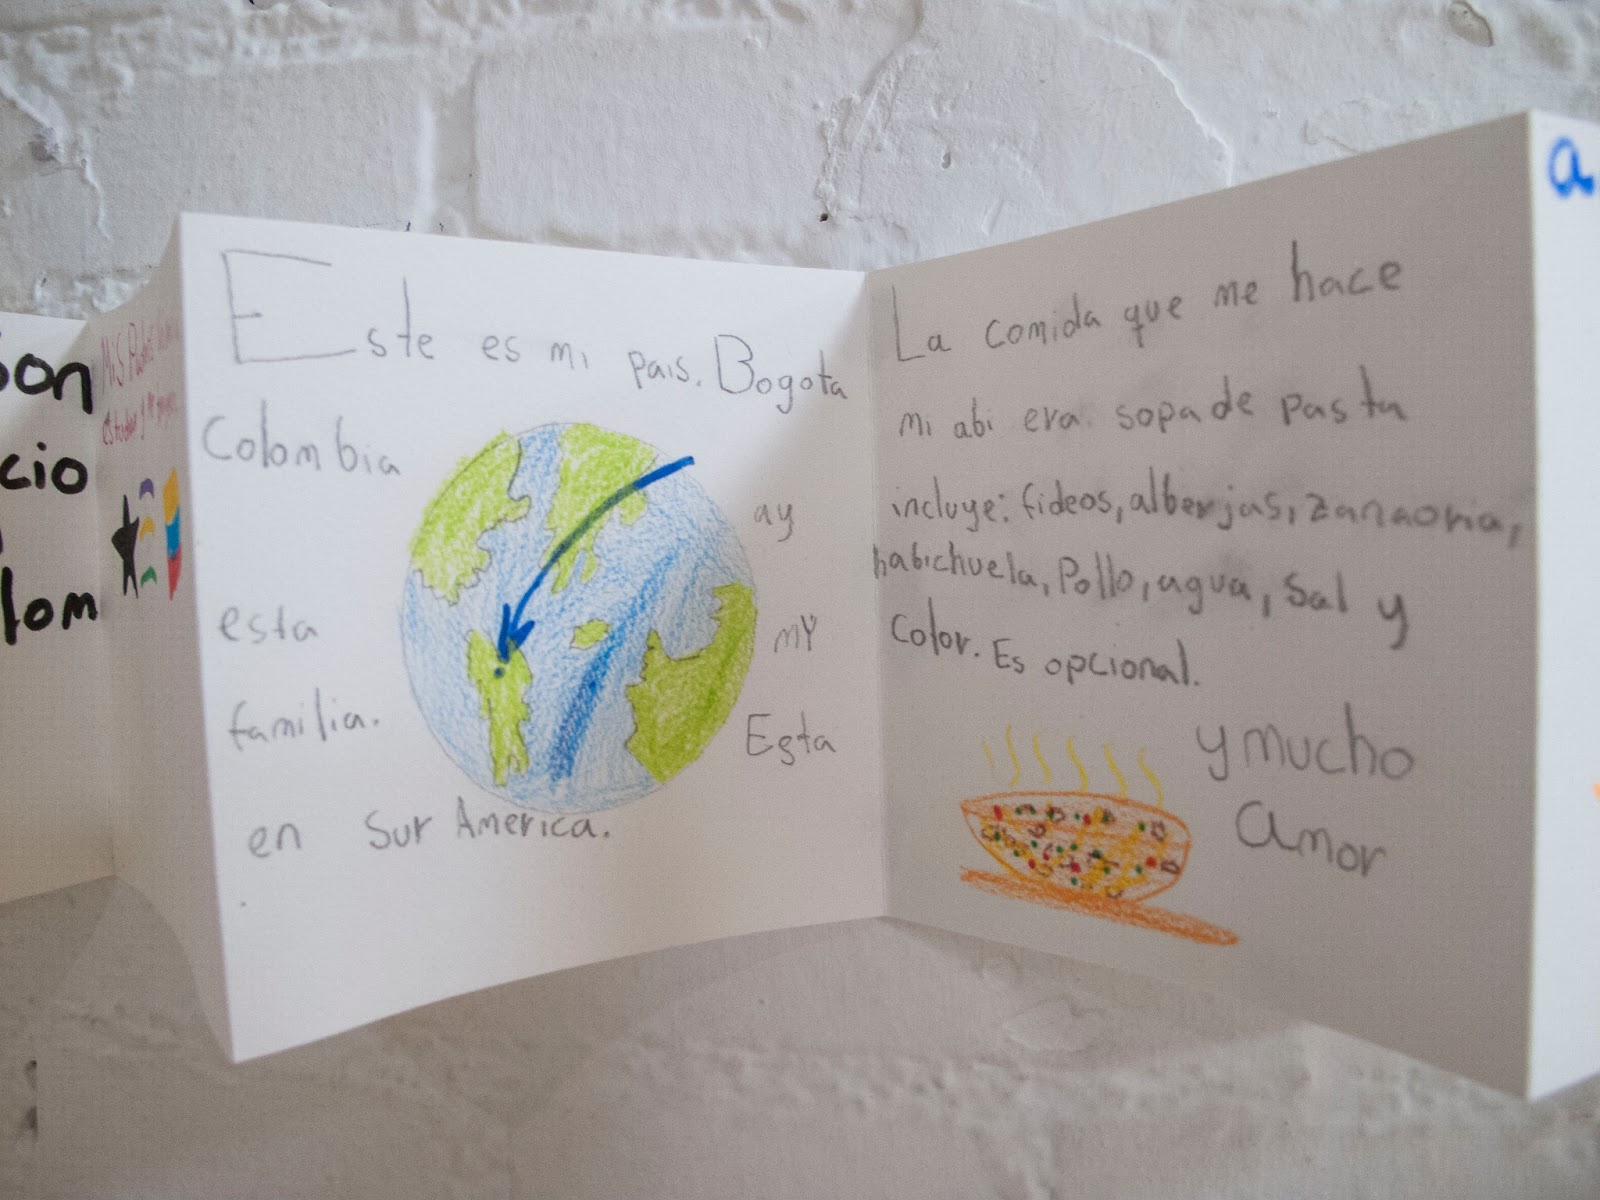 on
cio
lom
Mis
Este es mi pais. Bogota
Colombia
ay
esta my
familia. Esta
en Sur America.
La comida que me hace
mi abi era sopa de pasta
incluye: fideos, alberjas, zanaoria,
habichuela, Pollo, agua, sal y
Color. Es opcional.
y mucho
amor
a